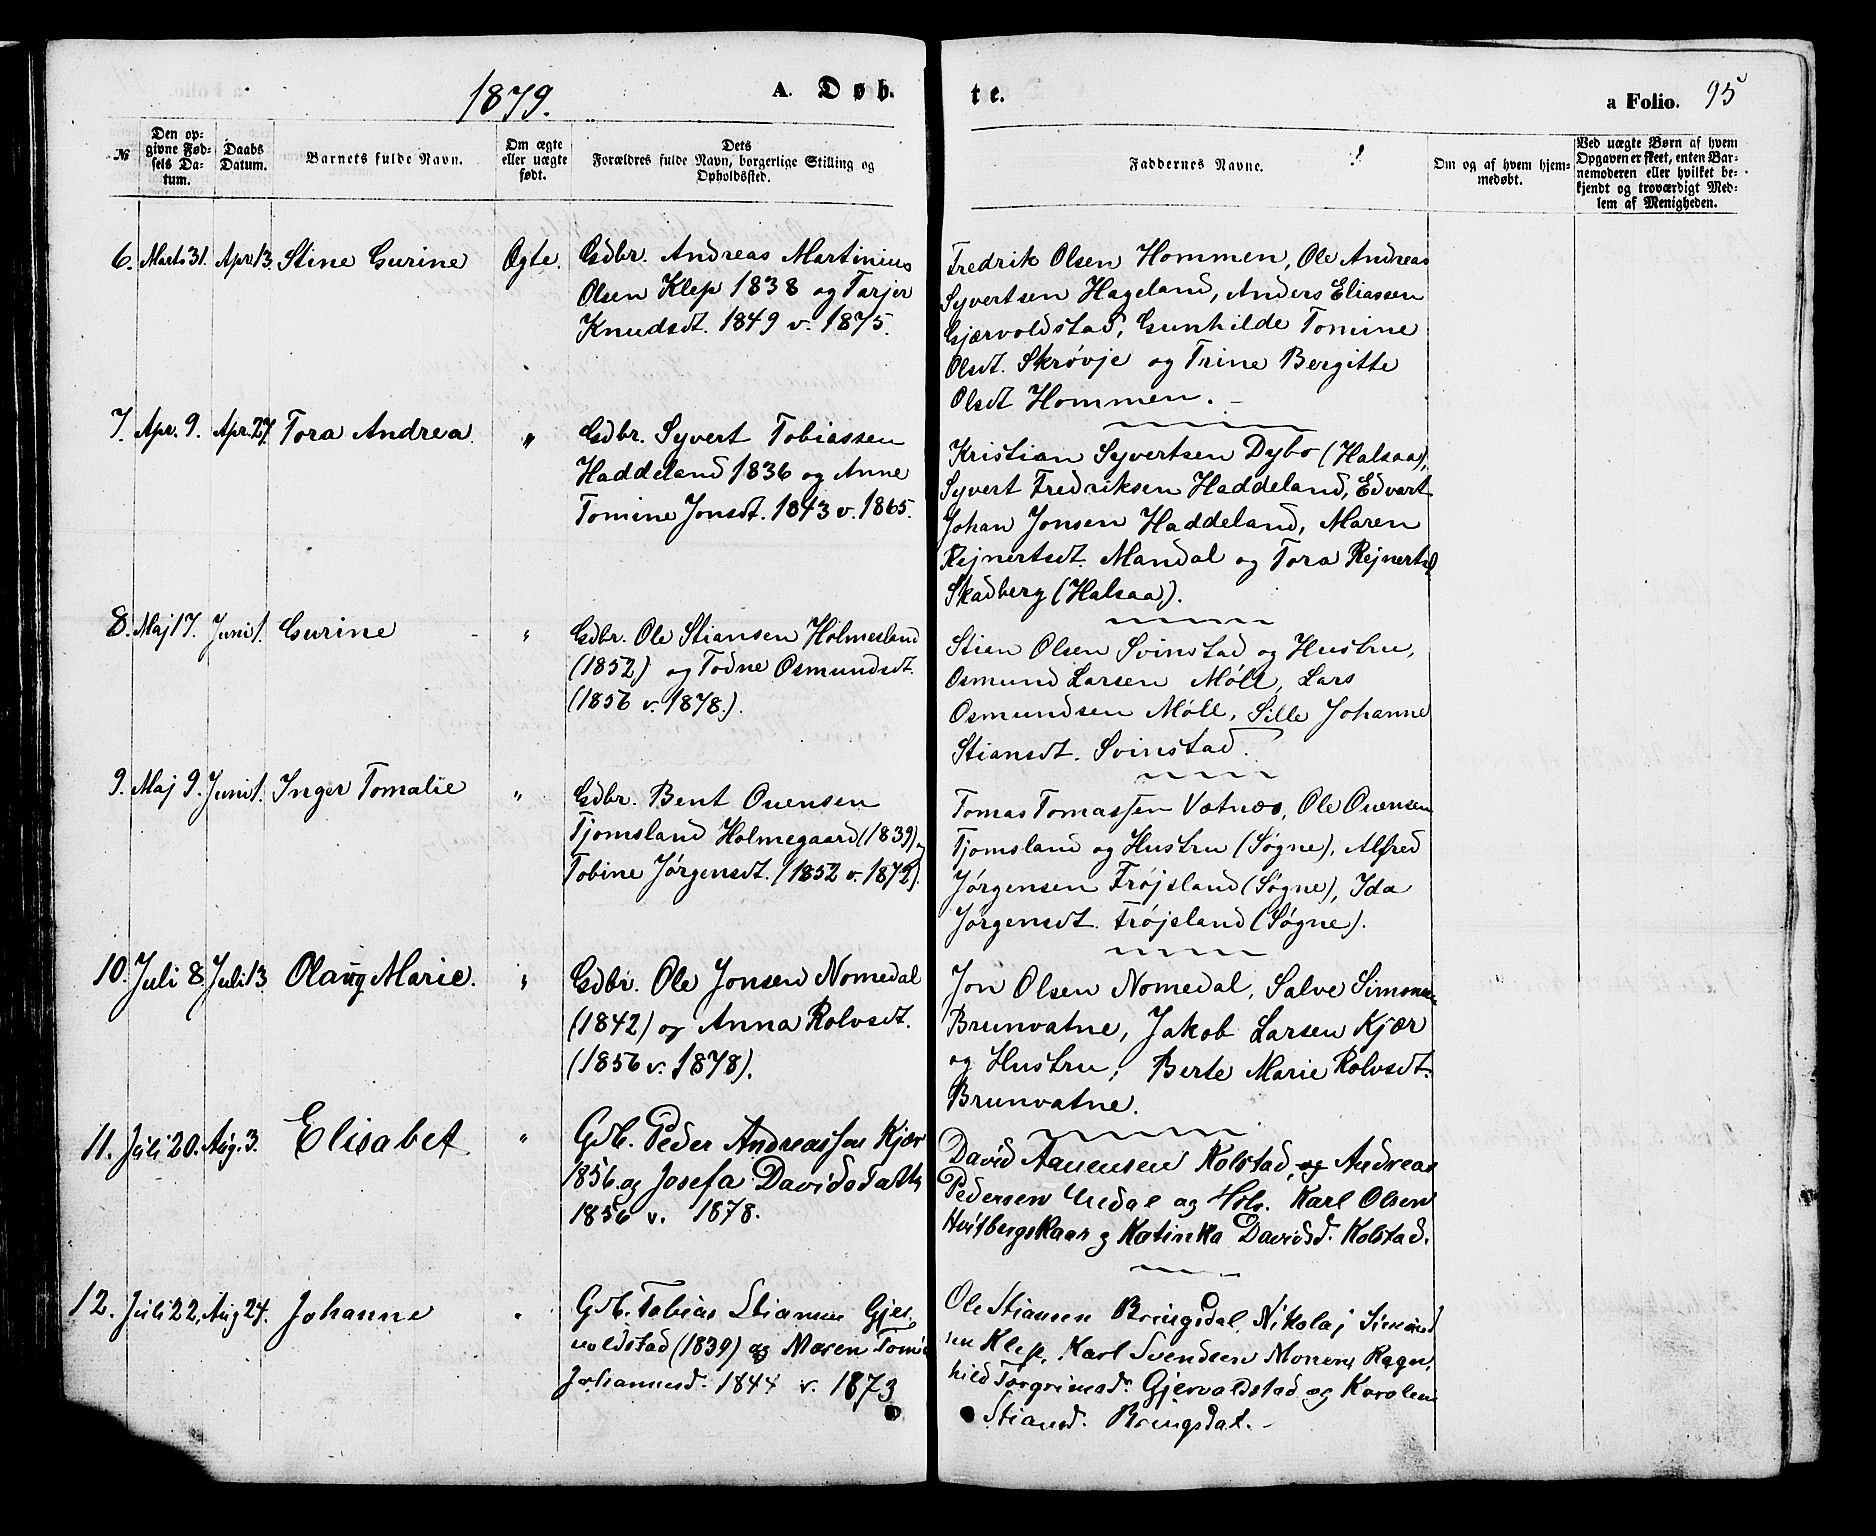 1879.
A. Døb te. a Folio. 95
№ Den opgivne Fødsels Datum. Daabs Datum. Barnets fulde Navn. Om ægte eller uægte født. Dets Forældres fulde Navn, borgerlige Stilling og Opholdssted. Faddernes Navne. Om og af hvem hjemmedøbt. Ved uægte Børn af hvem Opgaven er skeet, enten Barnemoderen eller hvilket bekjendt og troværdigt Medlem af Menigheden.
6. Marts 31. Apr. 13. Stine Gurine Ægte. Gdbr. Andreas Martinius
Olsen Klep 1838 og Tarjer
Knudsdt. 1849 v. 1875.
Fredrik Olsen Hommen, Ole Andreas
Syvertsen Hageland, Anders Eliassen
Gjærvoldstad, Gunhilde Tomine
Olsdt. Skrøvje og Trine Bergitte
Olsdt Hommen. –
7. Apr. 9. Apr. 27. Tora Andrea. " Gdbr. Syvert Tobiassen
Haddeland 1836 og Anne
Tomine Jonsdt. 1843 v. 1865.
Kristian Syvertsen Dybo (Halsaa),
Syvert Fredriksen Haddeland, Edvart
Johan Jonsen Haddeland, Maren
Rejnertsdt. Mandal og Tora Rejnertsd
Skadberg (Halsaa).
8. Maj 17. Juni 1. Gurine " Gdbr. Ole Stiansen Holmesland
(1852) og Todne Osmundsdt.
(1856 v. 1878.).
Stien Olsen Svinstad og Hustru,
Osmund Larsen Møll, Lars
Osmundsen Møll, Sille Johanne
Stiansdt. Svinstad.
9. Maj 9. Juni 1. Inger Tomalie " Gdbr. Bent Ouensen
Tjomsland Holmegaard (1839) og
Tobine Jørgensdt. (1852 v. 1872).
Tomas Tomassen Vatnes, Ole Ouensen
Tjomsland og Hustru (Søgne), Alfred
Jørgensen Frøjsland (Søgne), Ida
Jørgensdt. Frøjsland (Søgne).
10. Juli 8. Juli 13. Olaug Marie. " Gdbr. Ole Jonsen Nomedal
(1842) og Anna Rolvsdt.
(1856 v. 1878).
Jon Olsen Nomedal, Salve Simonsen
Brunvatne, Jakob Larsen Kjær
og Hustru, Berte Marie Rolvsdt.
Brunvatne.
11. Juli 20. Aug. 3. Elisabet " Gdb. Peder Andreassen Kjær
1856 og Josefa Davidsdatter
1856 v. 1878.
David Aanensen Kolstad, og Andreas
Pedersen Uedal og Hstr. Karl Olsen
Hvitbergskaar og Katinka Davidsd. Kolstad.
12. Juli 22. Aug 24. Johanne " Gdb. Tobias Stiansen Gjer-
voldstad (1839) og Maren Tomi
Johannesd. 1844 v. 1873
Ole Stiansen Bringsdal, Nikolaj Simond
sen Klep, Karl Svendsen Monen, Ragn-
hild Torgrimsd. Gjervoldstad og Karolene
Stiansd. Bringsdal. –